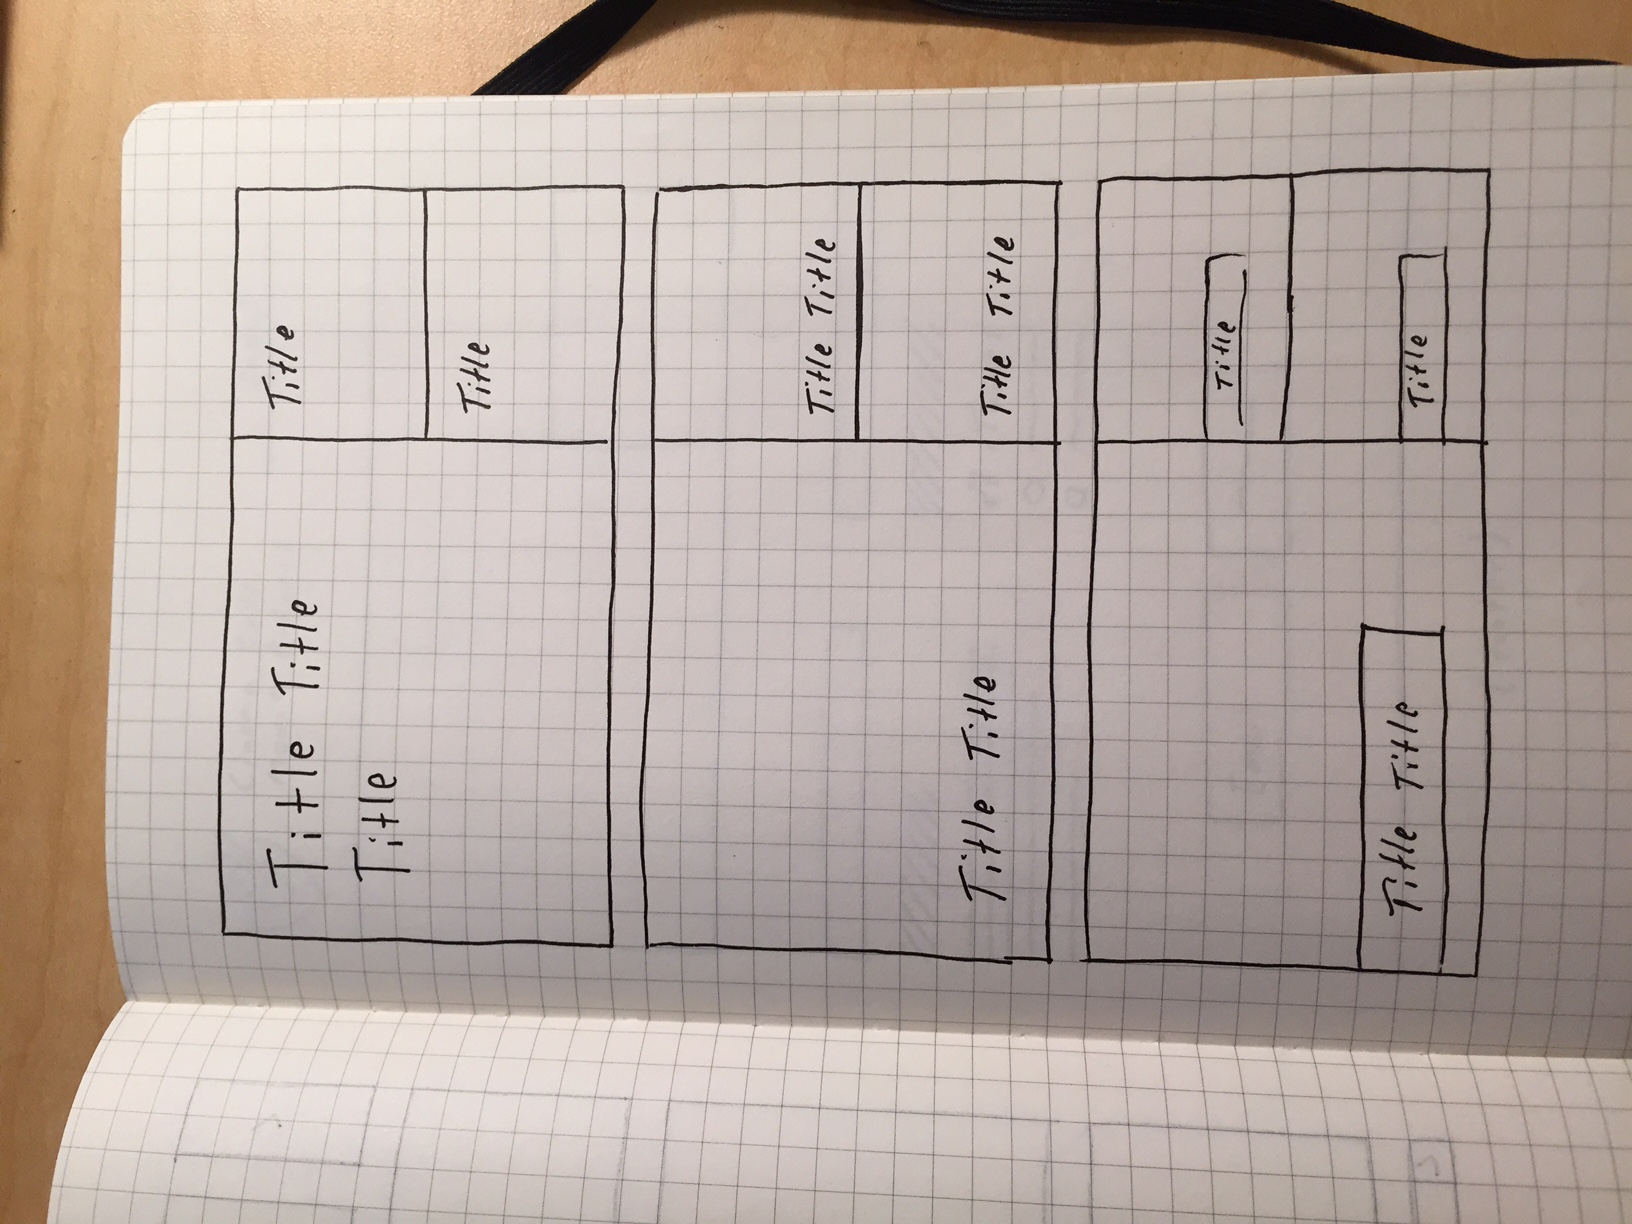 Title Title
Title
Title
Title
Title Title
Title Title
Title Title
Title
Title Title
Title